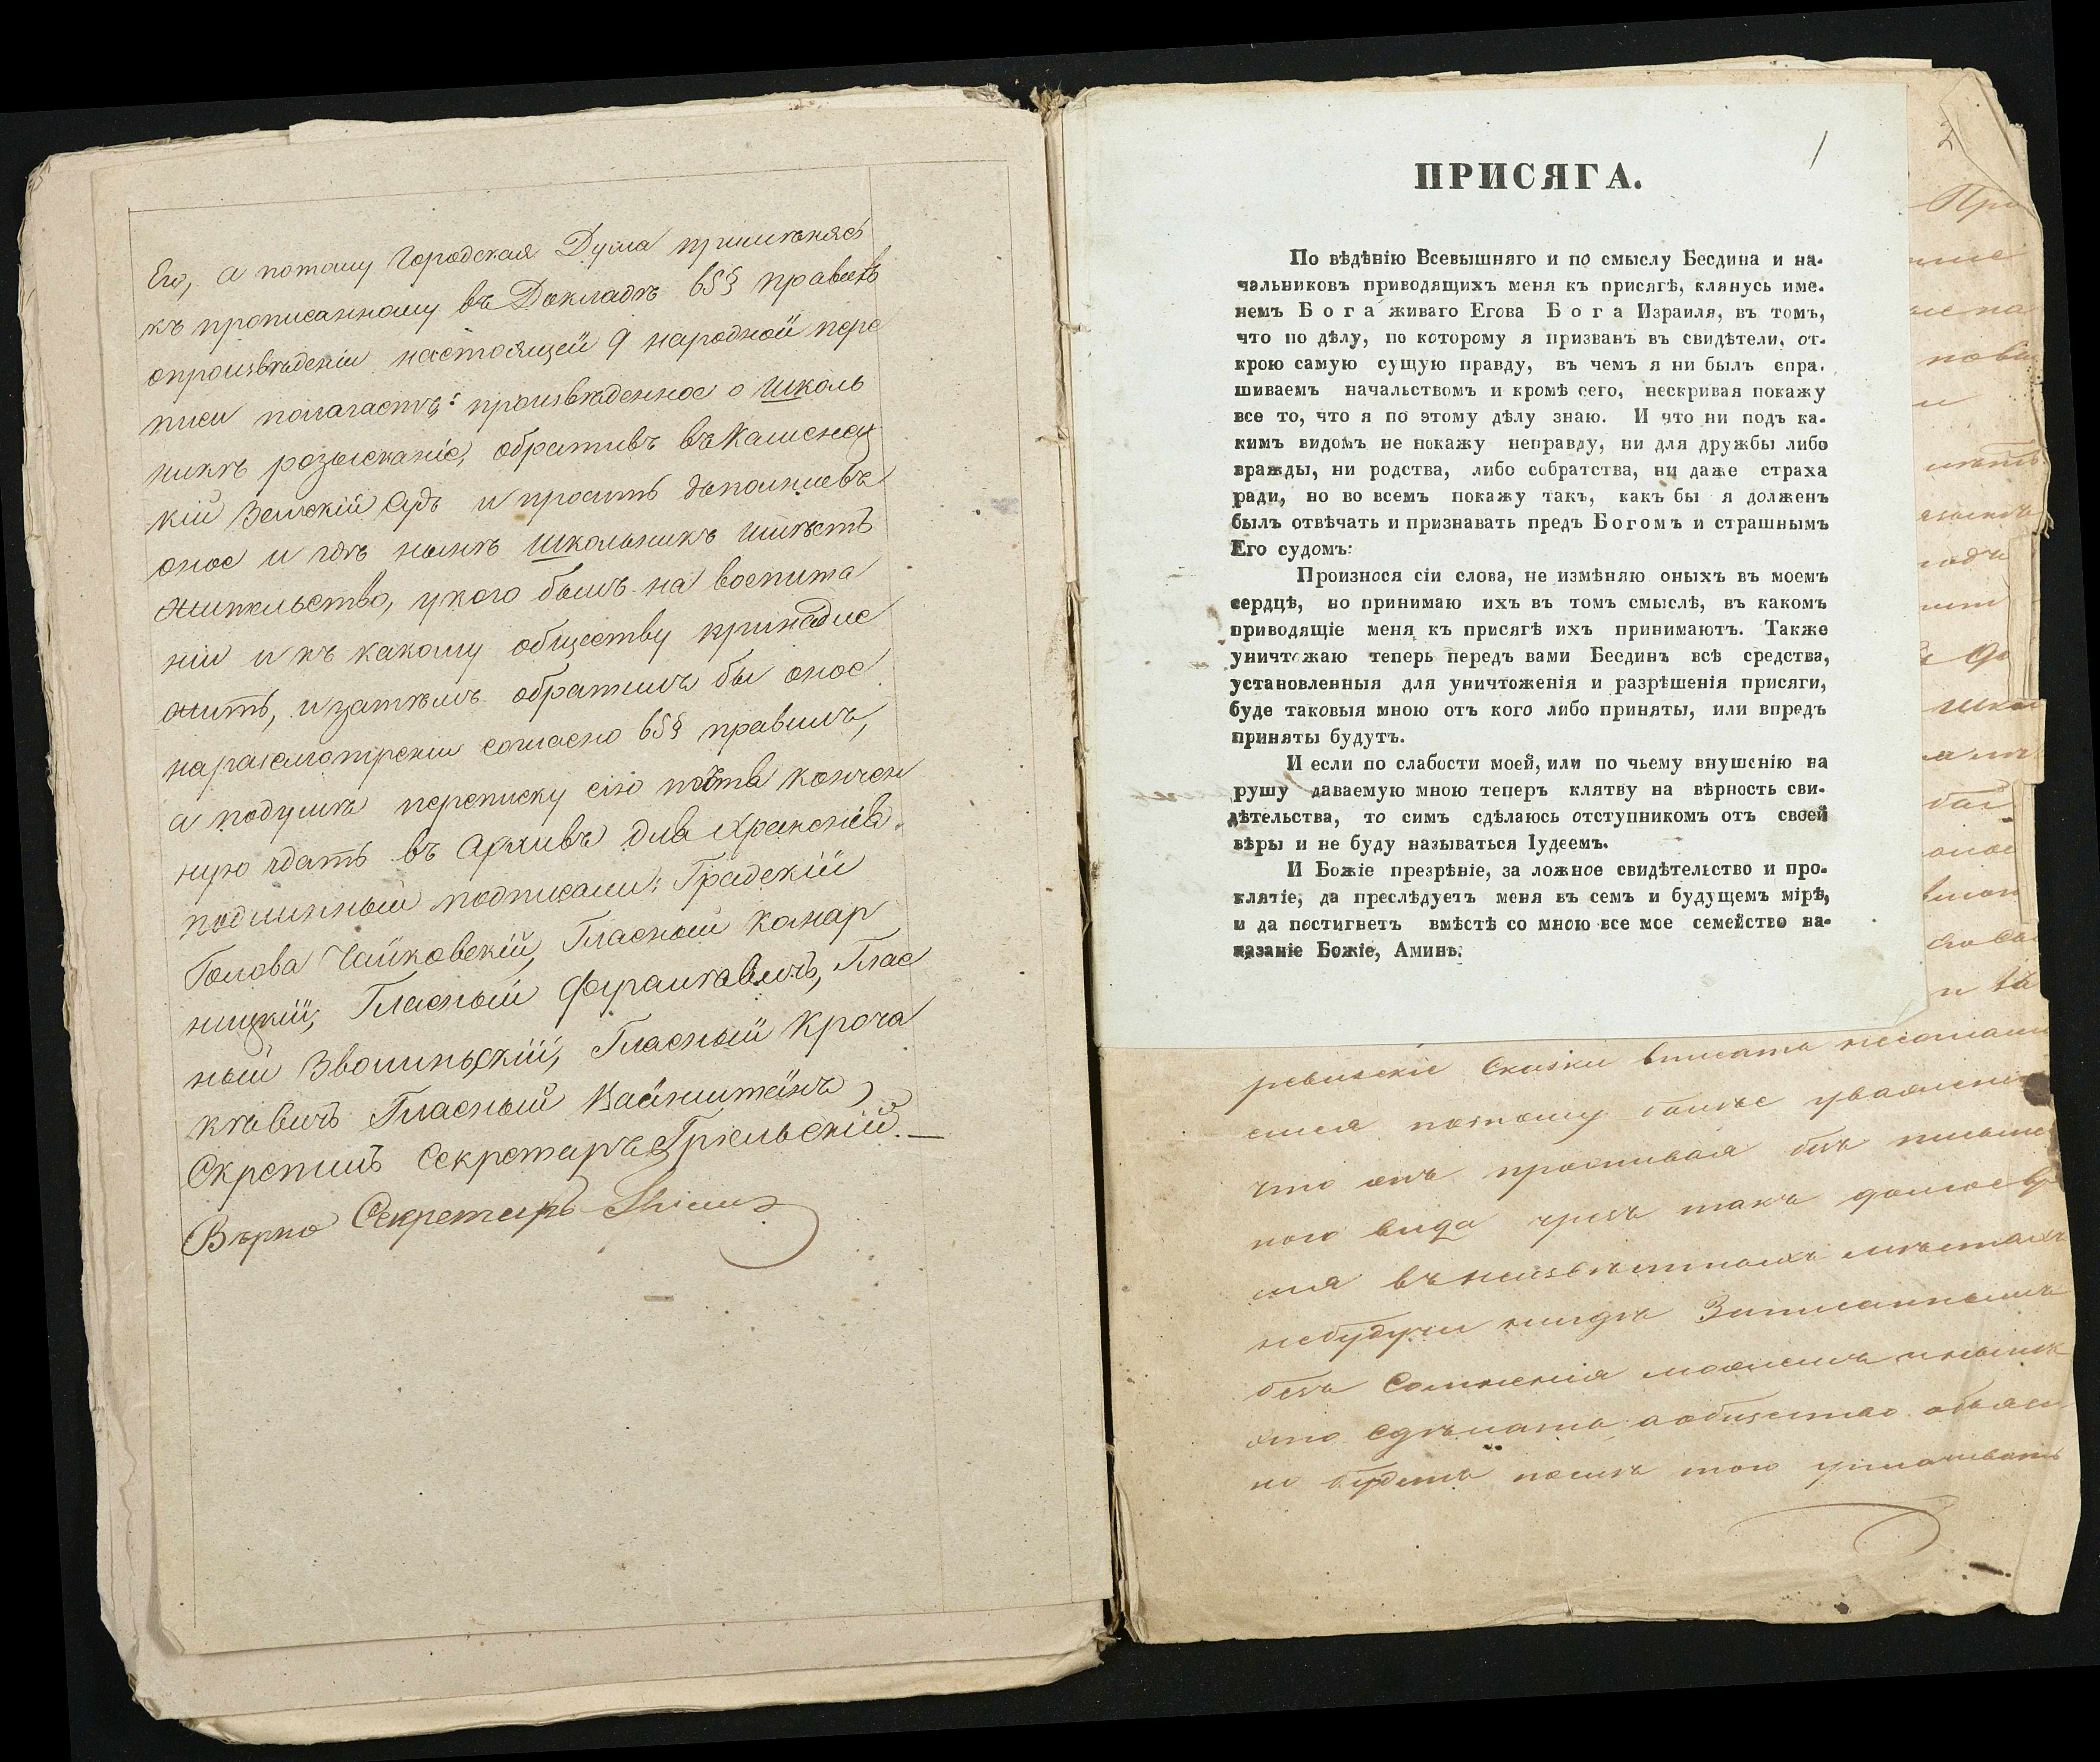 Его, а потому Городская Дума применяясь
къ прописанному въ Докладѣ 65§ правилъ
опроизвѣденіи настоящей 9 народной пере
писи полагаетъ: произвѣденное о Школь
никѣ розысканіе, обративъ въ Каменец
кій Земскій Судъ и просить дополнивъ
оное и гдѣ нынѣ Школьникъ имѣетъ
жительство, укого былъ на воспита
ніи и къ какому обществу принадле
житъ, изатѣмъ обратилъ бы оное
наразсмотреніи согласно 65§ правилъ,
а подушѣ переписку сію
ную сдать въ Архивъ для храненія.
подлинный подписали: Градскій
Голова Чайковскій, Гласный Комар
ницкій, Гласный Гла
ный Зволиньскій, Гласный Кроча
кѣвичъ Гласный Вайнштейнъ,
Скрепилъ Секретарь
Вѣрно Секретарь
1
ПРИСЯГА.
По вѣдѣнію Всевышняго и по смыслу Бесдина и на-
чальниковъ приводящихъ меня къ присягѣ, клянусь име-
немъ Бога живаго Егова Бога Израиля, въ томъ,
что по дѣлу, по которому я призванъ въ свидѣтели, от-
крою самую сущую правду, въ чемъ я ни былъ спра-
шиваемъ начальствомъ и кромѣ сего, нескривая покажу
все то, что я по этому дѣлу знаю. И что ни подъ ка-
кимъ видомъ не покажу неправду, ни для дружбы либо
вражды, ни родства, либо собратства, ни даже страха
ради, но во всемъ покажу такъ, какъ бы я долженъ
былъ отвѣчать и признавать предъ Богомъ и страшнымъ
Его судомъ:
Произнося сіи слова, не измѣняю оныхъ въ моемъ
сердцѣ, но принимаю ихъ въ томъ смыслѣ, въ какомъ
приводящіе меня къ присягѣ ихъ принимаютъ. Также
уничтожаю теперь передъ вами Бесдинъ всѣ средства,
установленныя для уничтоженія и разрѣшенія присяги,
буде таковыя мною отъ кого либо приняты, или впредъ
приняты будутъ.
И если по слабости моей, или по чьему внушенію на
рушу даваемую мною теперъ клятву на вѣрность сви-
дѣтельства, то симъ сдѣлаюсь отступникомъ отъ своей
вѣры и не буду называться Іудеемъ.
И Божіе презрѣніе, за ложное свидѣтельство и про-
клятіе, да преслѣдуетъ меня въ семъ и будущемъ мірѣ,
и да постигнетъ вмѣстѣ со мною все мое семейство на-
казаніе Божіе, Аминь.
2
ревизскіе Сказки вписать
потому болѣе
что онъ проживая безъ письмен
ного вида чрезъ такъ долгое вре
мя въ неизвѣстныхъ мѣстахъ
небудучи нигдѣ Записаннымъ
безъ Сомненія можетъ и нынѣ
это сдѣлать, аобщество обязан
но будетъ послѣ того уплачивать